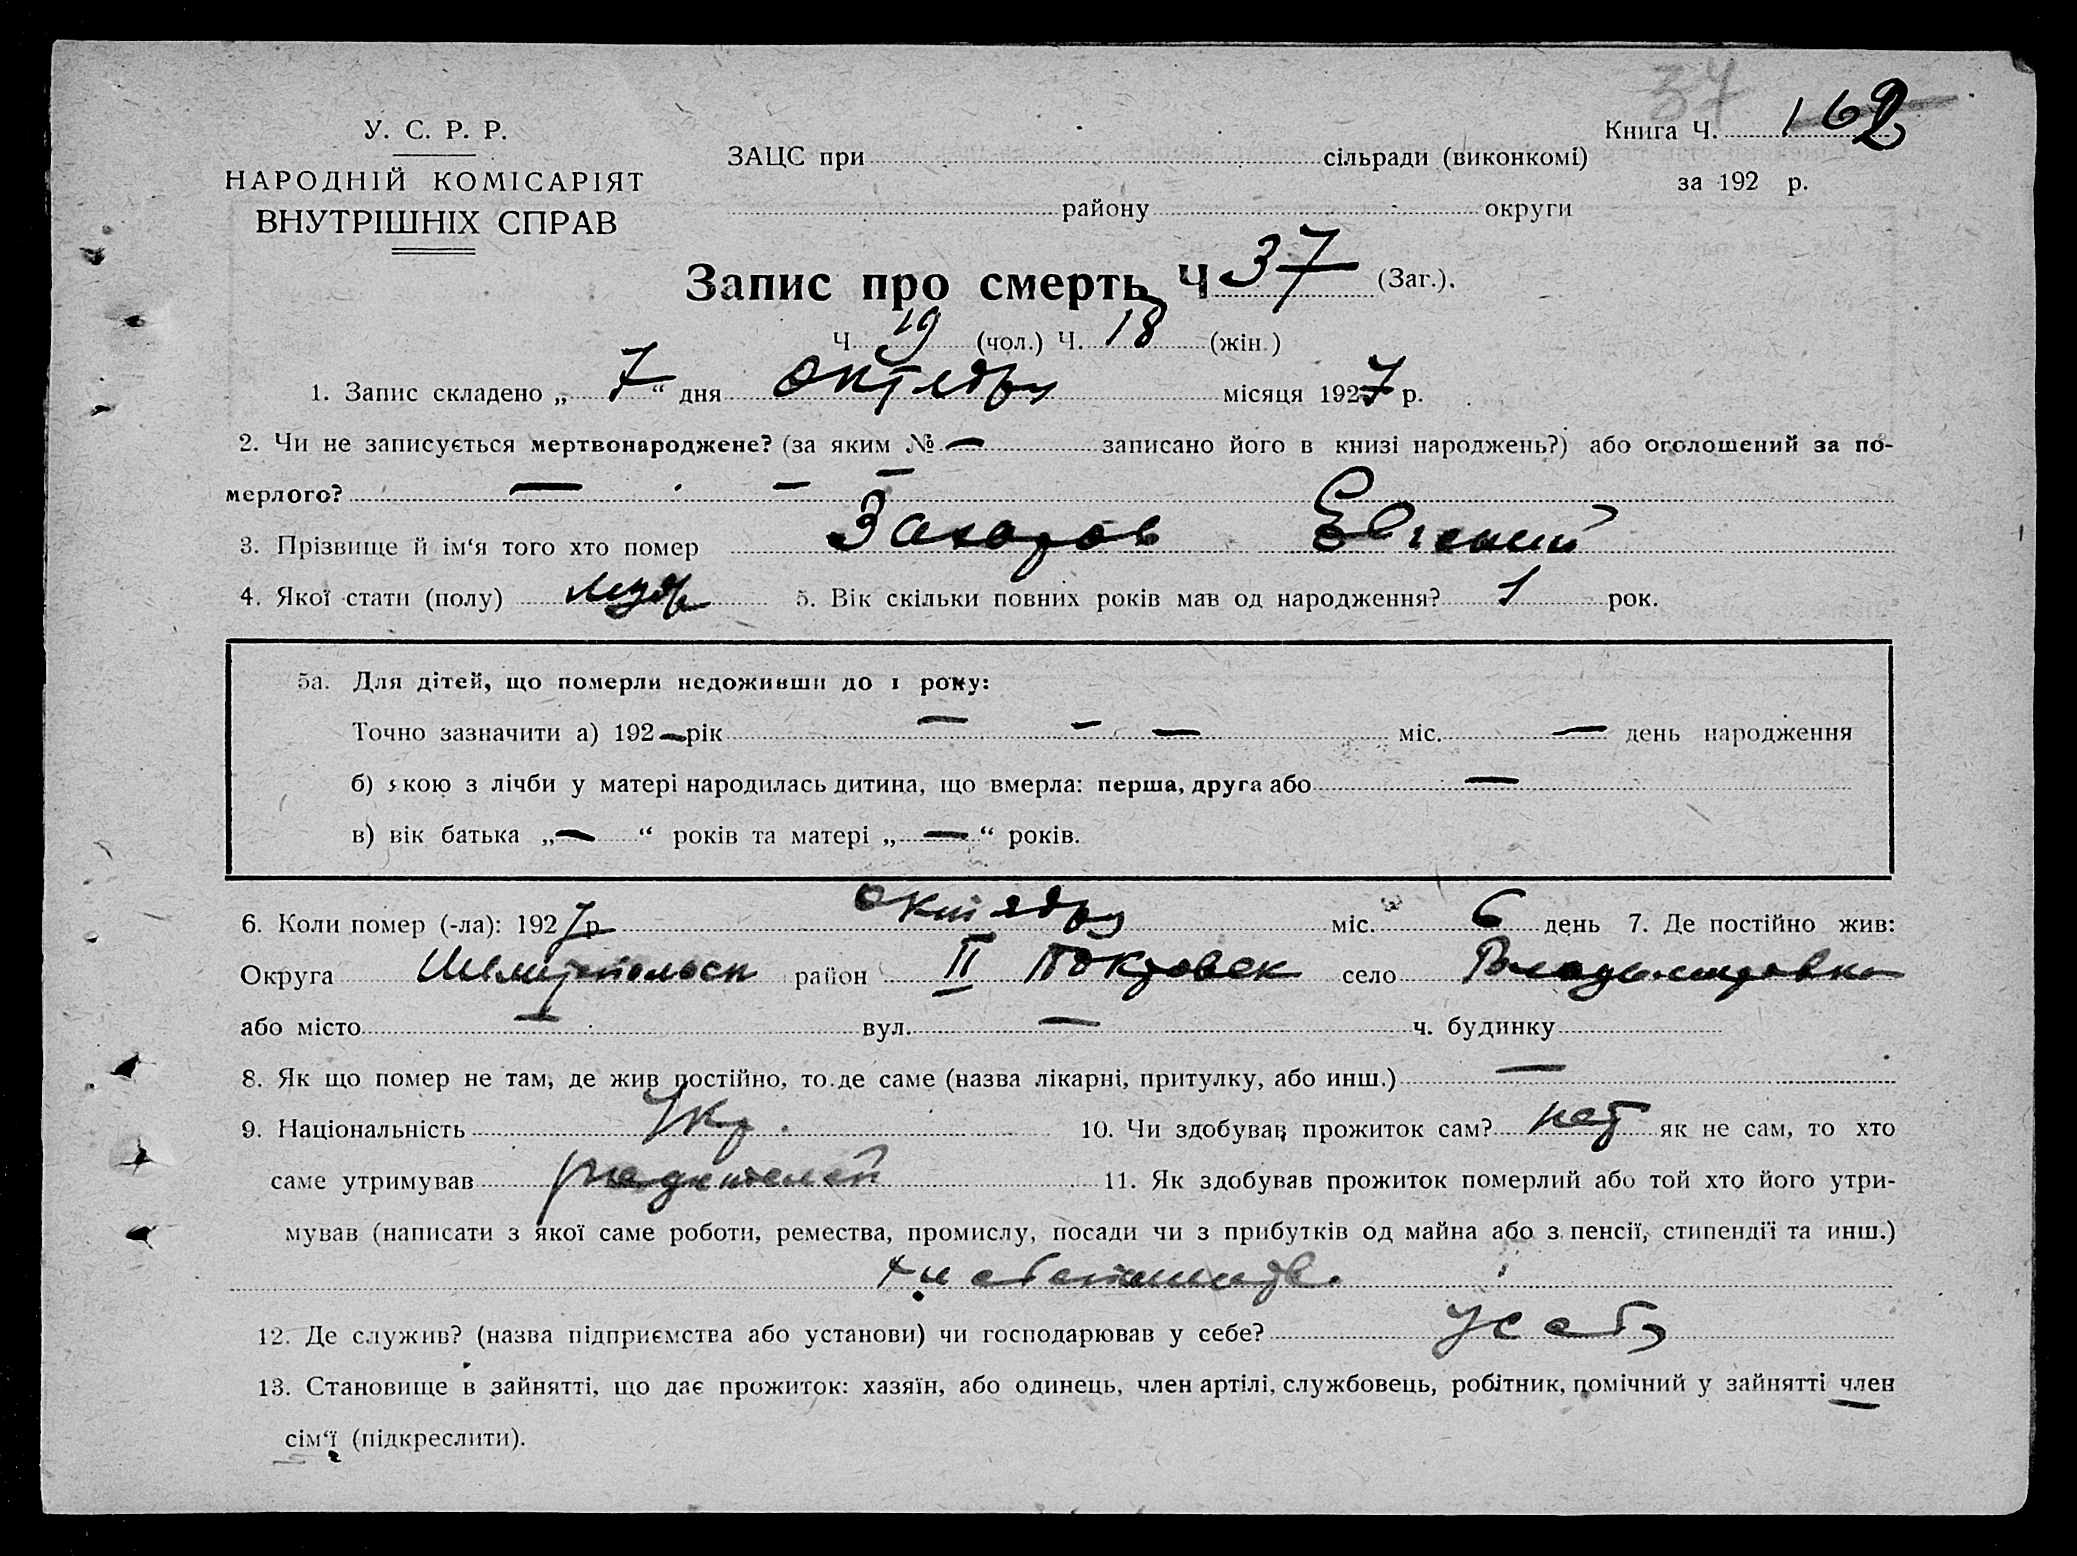 34
У. С. Р. Р.
НАРОДНІЙ КОМІСАРІЯТ
ВНУТРІШНІХ СПРАВ
ЗАЦС при сільради (виконкомі)
району округи
Книга Ч. 162
за 192 р.
Запис про смерть Ч 37 (Заг.).
Ч 19 (чол.) Ч. 18 (жін.)
1. Запис складено „ 7 “ дня октября місяця 1927 р.
2. Чи не записується мертвонароджене? (за яким № — записано його в книзі народжень?) або оголошений за по-
мерлого? — — —
3. Прізвище й ім‘я того хто помер Захаров Евгений
4. Якої стати (полу) муж 5. Вік скільки повних років мав од народження? 1 рок.
5а. Для дітей, що померли недоживши до 1 року:
Точно зазначити а) 192 — рік — — — міс. — день народження
б) якою з лічби у матері народилась дитина, що вмерла: перша, друга або —
в) вік батька „ — “ років та матері „ — “ років.
6. Коли помер (-ла): 1927 р октября міс. 6 день 7. Де постійно жив:
Округа район II Покровск село
або місто — вул. — ч. будинку
8. Як що помер не там, де жив постійно, то де саме (назва лікарні, притулку, або инш.) —
9. Національність Укр. 10. Чи здобував прожиток сам? нет як не сам, то хто
саме утримував родителей 11. Як здобував прожиток померлий або той хто його утри-
мував (написати з якої саме роботи, ремества, промислу, посади чи з прибутків од майна або з пенсії, стипендії та инш.)
12. Де служив? (назва підприємства або установи) чи господарював у себе? у себя
13. Становище в зайнятті, що дає прожиток: хазяїн, або одинець, член артілі, службовець, робітник, помічний у зайнятті член
сім‘ї (підкреслити).